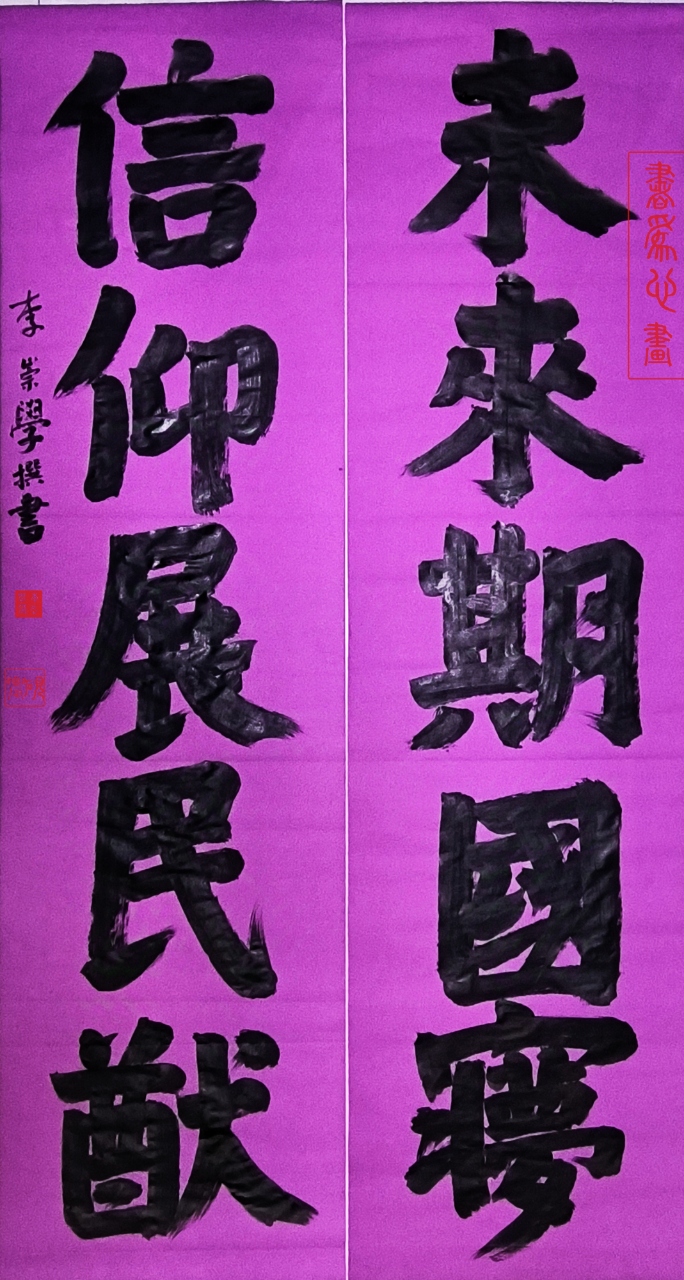 未來期國夢
信仰展民猷
李崇學撰書
書為心畫